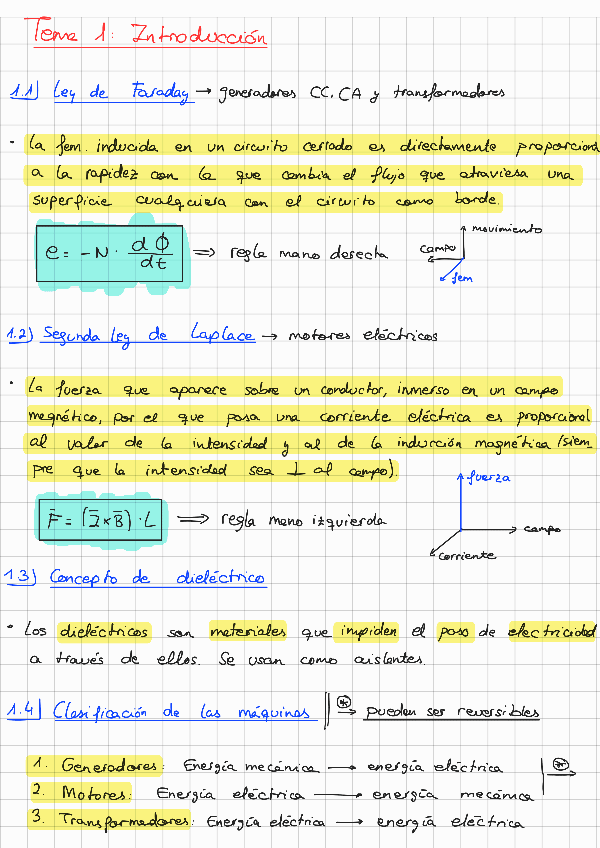 Tema 1: Introducción
1.1) Ley de Faraday → generadores CC, CA y transformadores
· La fem. inducida en un circuito cerrado es directamente proporcional
a la rapidez con la que cambia el flujo que atraviesa una
superficie cualquiera con el circuito como borde.
e = -N · dΦ/dt ⟹ regla mano derecha
movimiento
campo
fem
1.2) Segunda Ley de Laplace → motores eléctricos
· La fuerza que aparece sobre un conductor, inmerso en un campo
magnético, por el que pasa una corriente eléctrica es proporcional
al valor de la intensidad y al de la inducción magnética (siem
pre que la intensidad sea ⊥ al campo)
fuerza
F̄ = (Ī × B̄) · L ⟹ regla mano izquierda
campo
corriente
1.3) Concepto de dieléctrico
· Los dieléctricos son materiales que impiden el paso de electricidad
a través de ellos. Se usan como aislantes.
1.4) Clasificación de las máquinas ‖ ⊛→ pueden ser reversibles
1. Generadores: Energía mecánica → energía eléctrica | ⊛→
2. Motores: Energía eléctrica → energía mecánica
3. Transformadores: Energía eléctrica → energía eléctrica